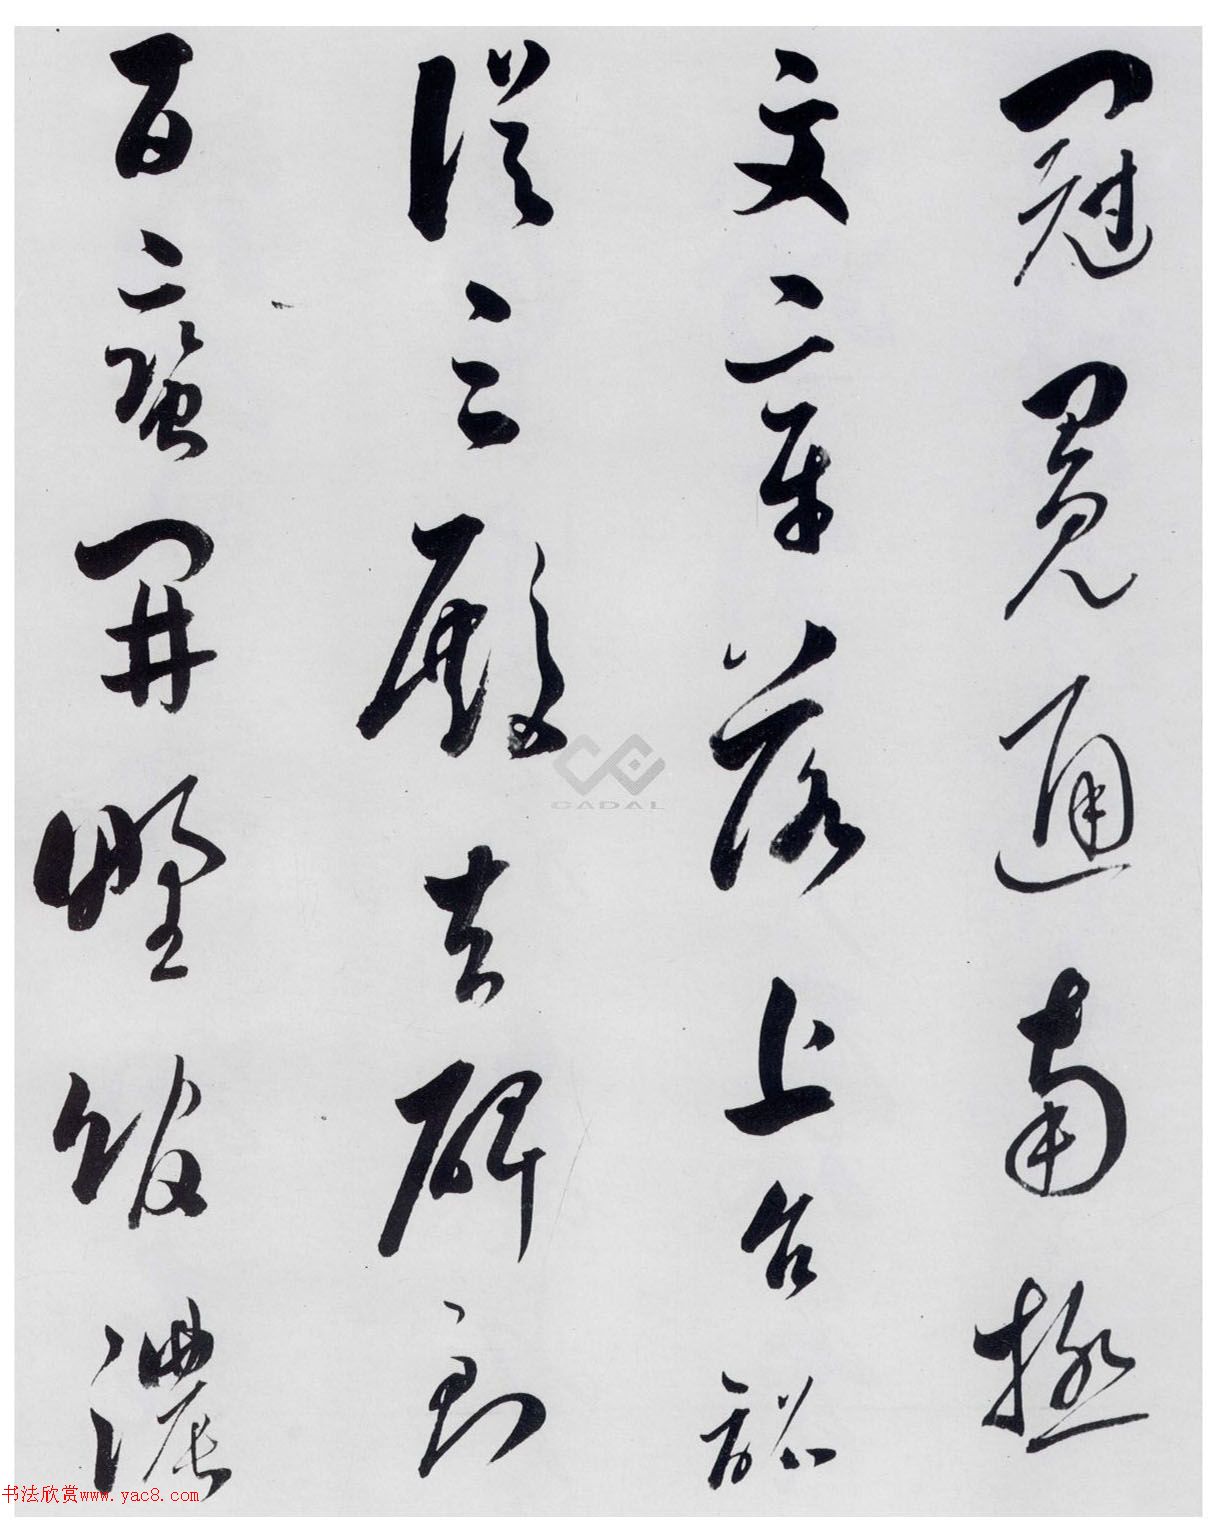 冠冕通南極
文章落上台詔
從三殿去碑到
百蠻開野館濃
CADAL
书法欣赏www.yac8.com